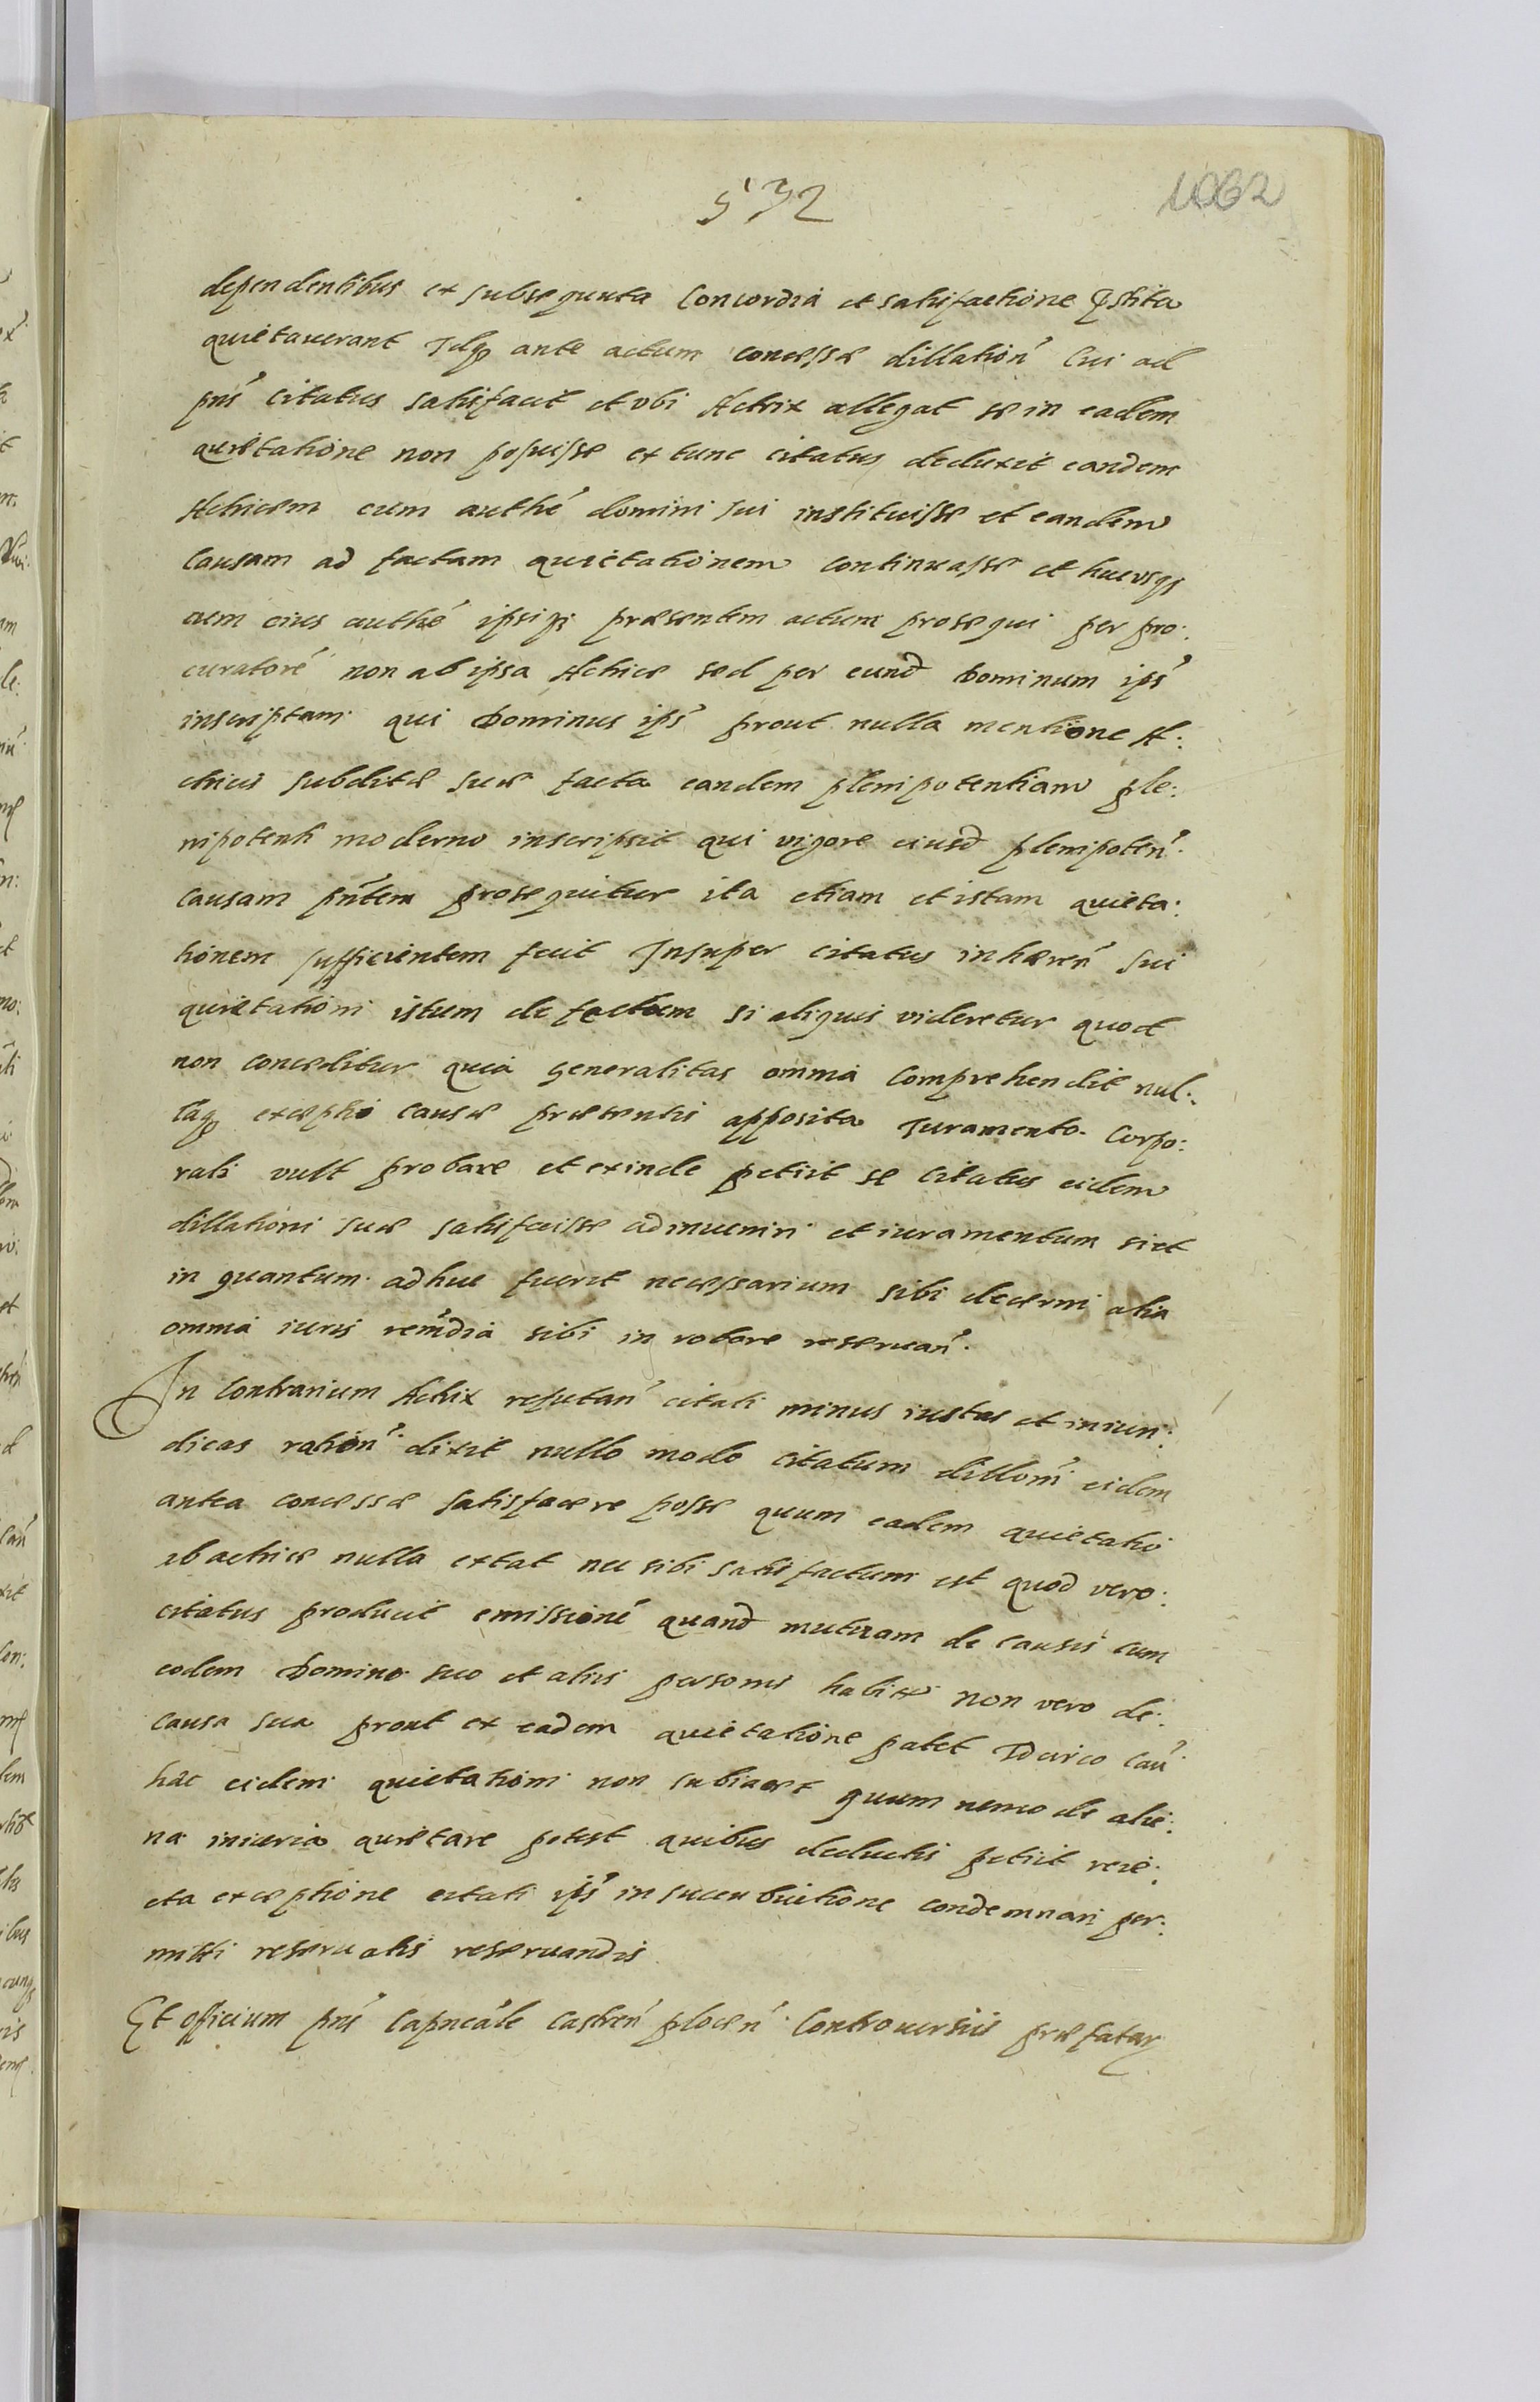 532
1062
dependentibus et subsequuta Concordia et satisfactione
quietauerant Idq ante actum concessæ dillation Cui ad
pns Citatus satisfacit et vbi Actrix allegat se in eadem
quietatione non posuisse ex tunc citatus deduxit eandem
Actricem cum authe domini sui instituisse et eandem
Causam ad factam quietationem continuasse et hucusq
cum eius authe præsentem actum prosequi per pro:
curatore non ab ipsa Actrice sed per eund Dominum ips
inscriptam qui Dominus ips prout nulla mentione A:
ctricis subditæ suæ facta eandem plenipotentiam ple:
nipotenti moderno inscripsit qui vigore eiusd plenipoten
causam pntem prosequitur ita etiam et istam quieta:
tionem sufficientem fecit Insuper citatus inhæren sui
quietationi istum defectum si aliquis videretur quod
non conceditur quia generalitas omnia Comprehendit nul:
laq exceptio causæ præsentis apposita Iuramento Corpo:
rali vult probare et exinde petiit se Citatus eidem
dillationi suæ satisfecisse adinueniri et iuramentum si et
in quantum adhuc fuerit necessarium sibi decerni alia
omnia iuris remdia sibi in robore reseruan
In Contrarium Actrix refutan citati minus iustas et iniuri:
dicas ration dixit nullo modo Citatum dilloni eidem
antea concessæ satisfacere posse quum eadem quietatio
ab actrice nulla extat nec sibi satisfactum est quod vero
citatus producit emissione quand mutuam de causis cum
eodem Domino suo et aliis personis habitæ non vero de:
causa sua prout ex eadem quietatione patet Idcirco Cau
hac eidem quietationi non subiacet quum nemo de alie:
na iniuria quietare potest quibus deductis petiit reie:
cta exceptione citati ips in succubuitione condemnari per:
mitti reseruatis reseruandis
Et Officium pns Capneale Castren plocen Controuersiis præfatar